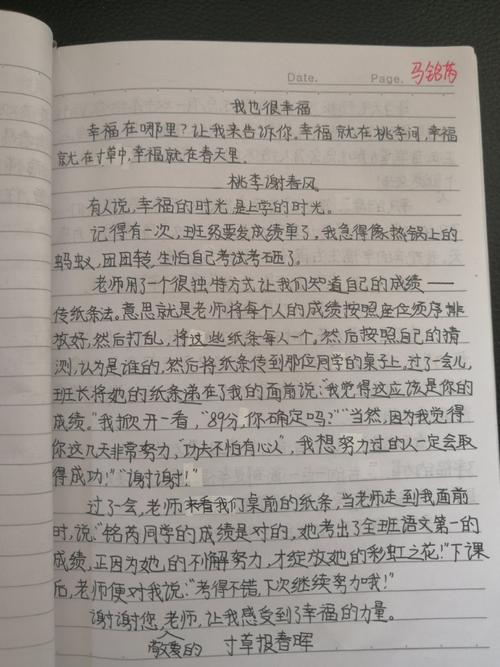 Date. Page. 马铭芮
我也很幸福
幸福在哪里？让我来告诉你，幸福就在桃李间，幸福
就在寸草中，幸福就在春天里。
桃李谢春风
有人说，幸福的时光是上学的时光。
记得有一次，班级要发成绩单了，我急得像热锅上的
蚂蚁，团团转，生怕自己考试考砸了。
老师用了一个很独特方式让我们知道自己的成绩——
传纸条法。意思就是老师将每个人的成绩按照座位顺序排
放好，然后打乱，将这些纸条每人一个。然后按照自己的猜
测，认为是谁的，然后将纸条传到那位同学的桌子上。过了一会儿，
班长将她的纸条递在了我的面前说：“我觉得这应该是你的
成绩。”我掀开一看，“89分，你确定吗？”“当然，因为我觉得
你这几天非常努力，‘功夫不怕有心人’，我想努力过的人一定会取
得成功！”“谢谢！”
过了一会，老师来看我们桌前的纸条，当老师走到我面前
时，说：“铭芮同学的成绩是对的，她考出了全班语文第一的
成绩，正因为她的不懈努力，才绽放她的彩虹之花！”下课
后，老师便对我说：“考得不错，下次继续努力哦！”
谢谢您，老师，让我感受到了幸福的力量。
敬爱的 寸草报春晖